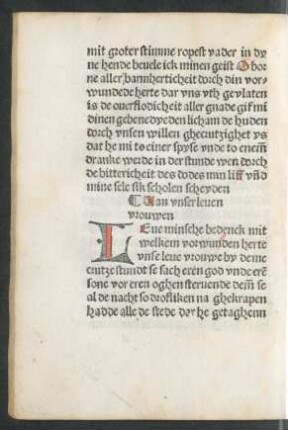 mit groter stimme ropest vader in dy
ne hende beuele ick minen geist O bor
ne aller barmherticheit dorch din vor-
wundede herte dar vns vth gevlaten
is de ouerflodicheit aller gnade gif mi
dinen gebenedyeden licham de huden
dorch vnsen willen ghecrutzighet ys
dat he mi to einer spyse vnde to enem
dranke werde in der stunde wen dorch
de bittericheit des dodes min liff vnd
mine sele sik scholen scheyden
¶ Van vnser leuen
vrouwen
LEue minsche bedenck mit
welkem vorwunden herte
vnse leue vrouwe by deme
crutze stundt se sach eren god vnde erē
sone vor eren oghen steruende dem se
al de nacht so drofliken na ghekrapen
hadde alle de stede dar he getaghenn